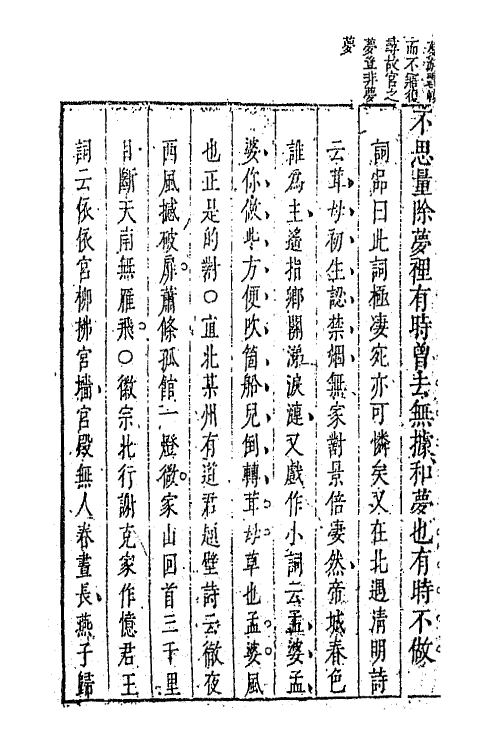 而不寤復
尋故宮之
夢豈非夢
夢
不思量除夢裡有時曾去無據和夢也有時不做
詞品曰此詞極凄宛亦可憐矣又在北遇清明詩
云茸母初生認禁烟無家對景倍凄然帝城春色
誰為主遙指鄉關涕淚漣又戲作小詞云孟婆孟
婆你做些方便吹箇船兒倒轉茸母草也孟婆風
也正是的對○直北某州有道君題壁詩云徹夜
西風撼破扉蕭條孤館一燈微家山回首三千里
目斷天南無雁飛○徽宗北行謝克家作憶君王
詞云依依宮柳拂宮墻宮殿無人春晝長燕子歸